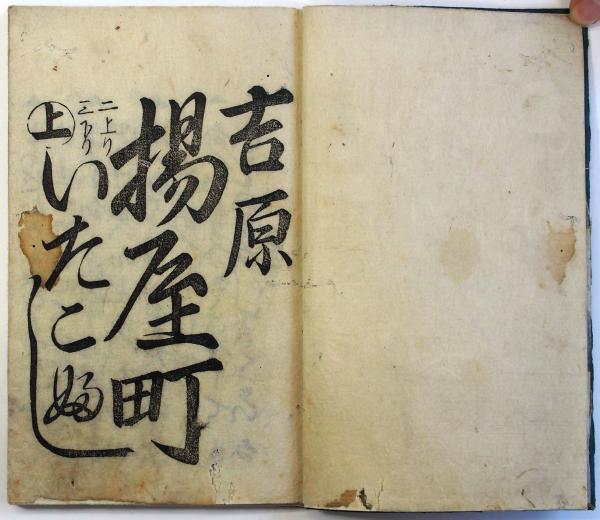 吉原
揚屋町
二上り
三下り
上 いたこ婦し